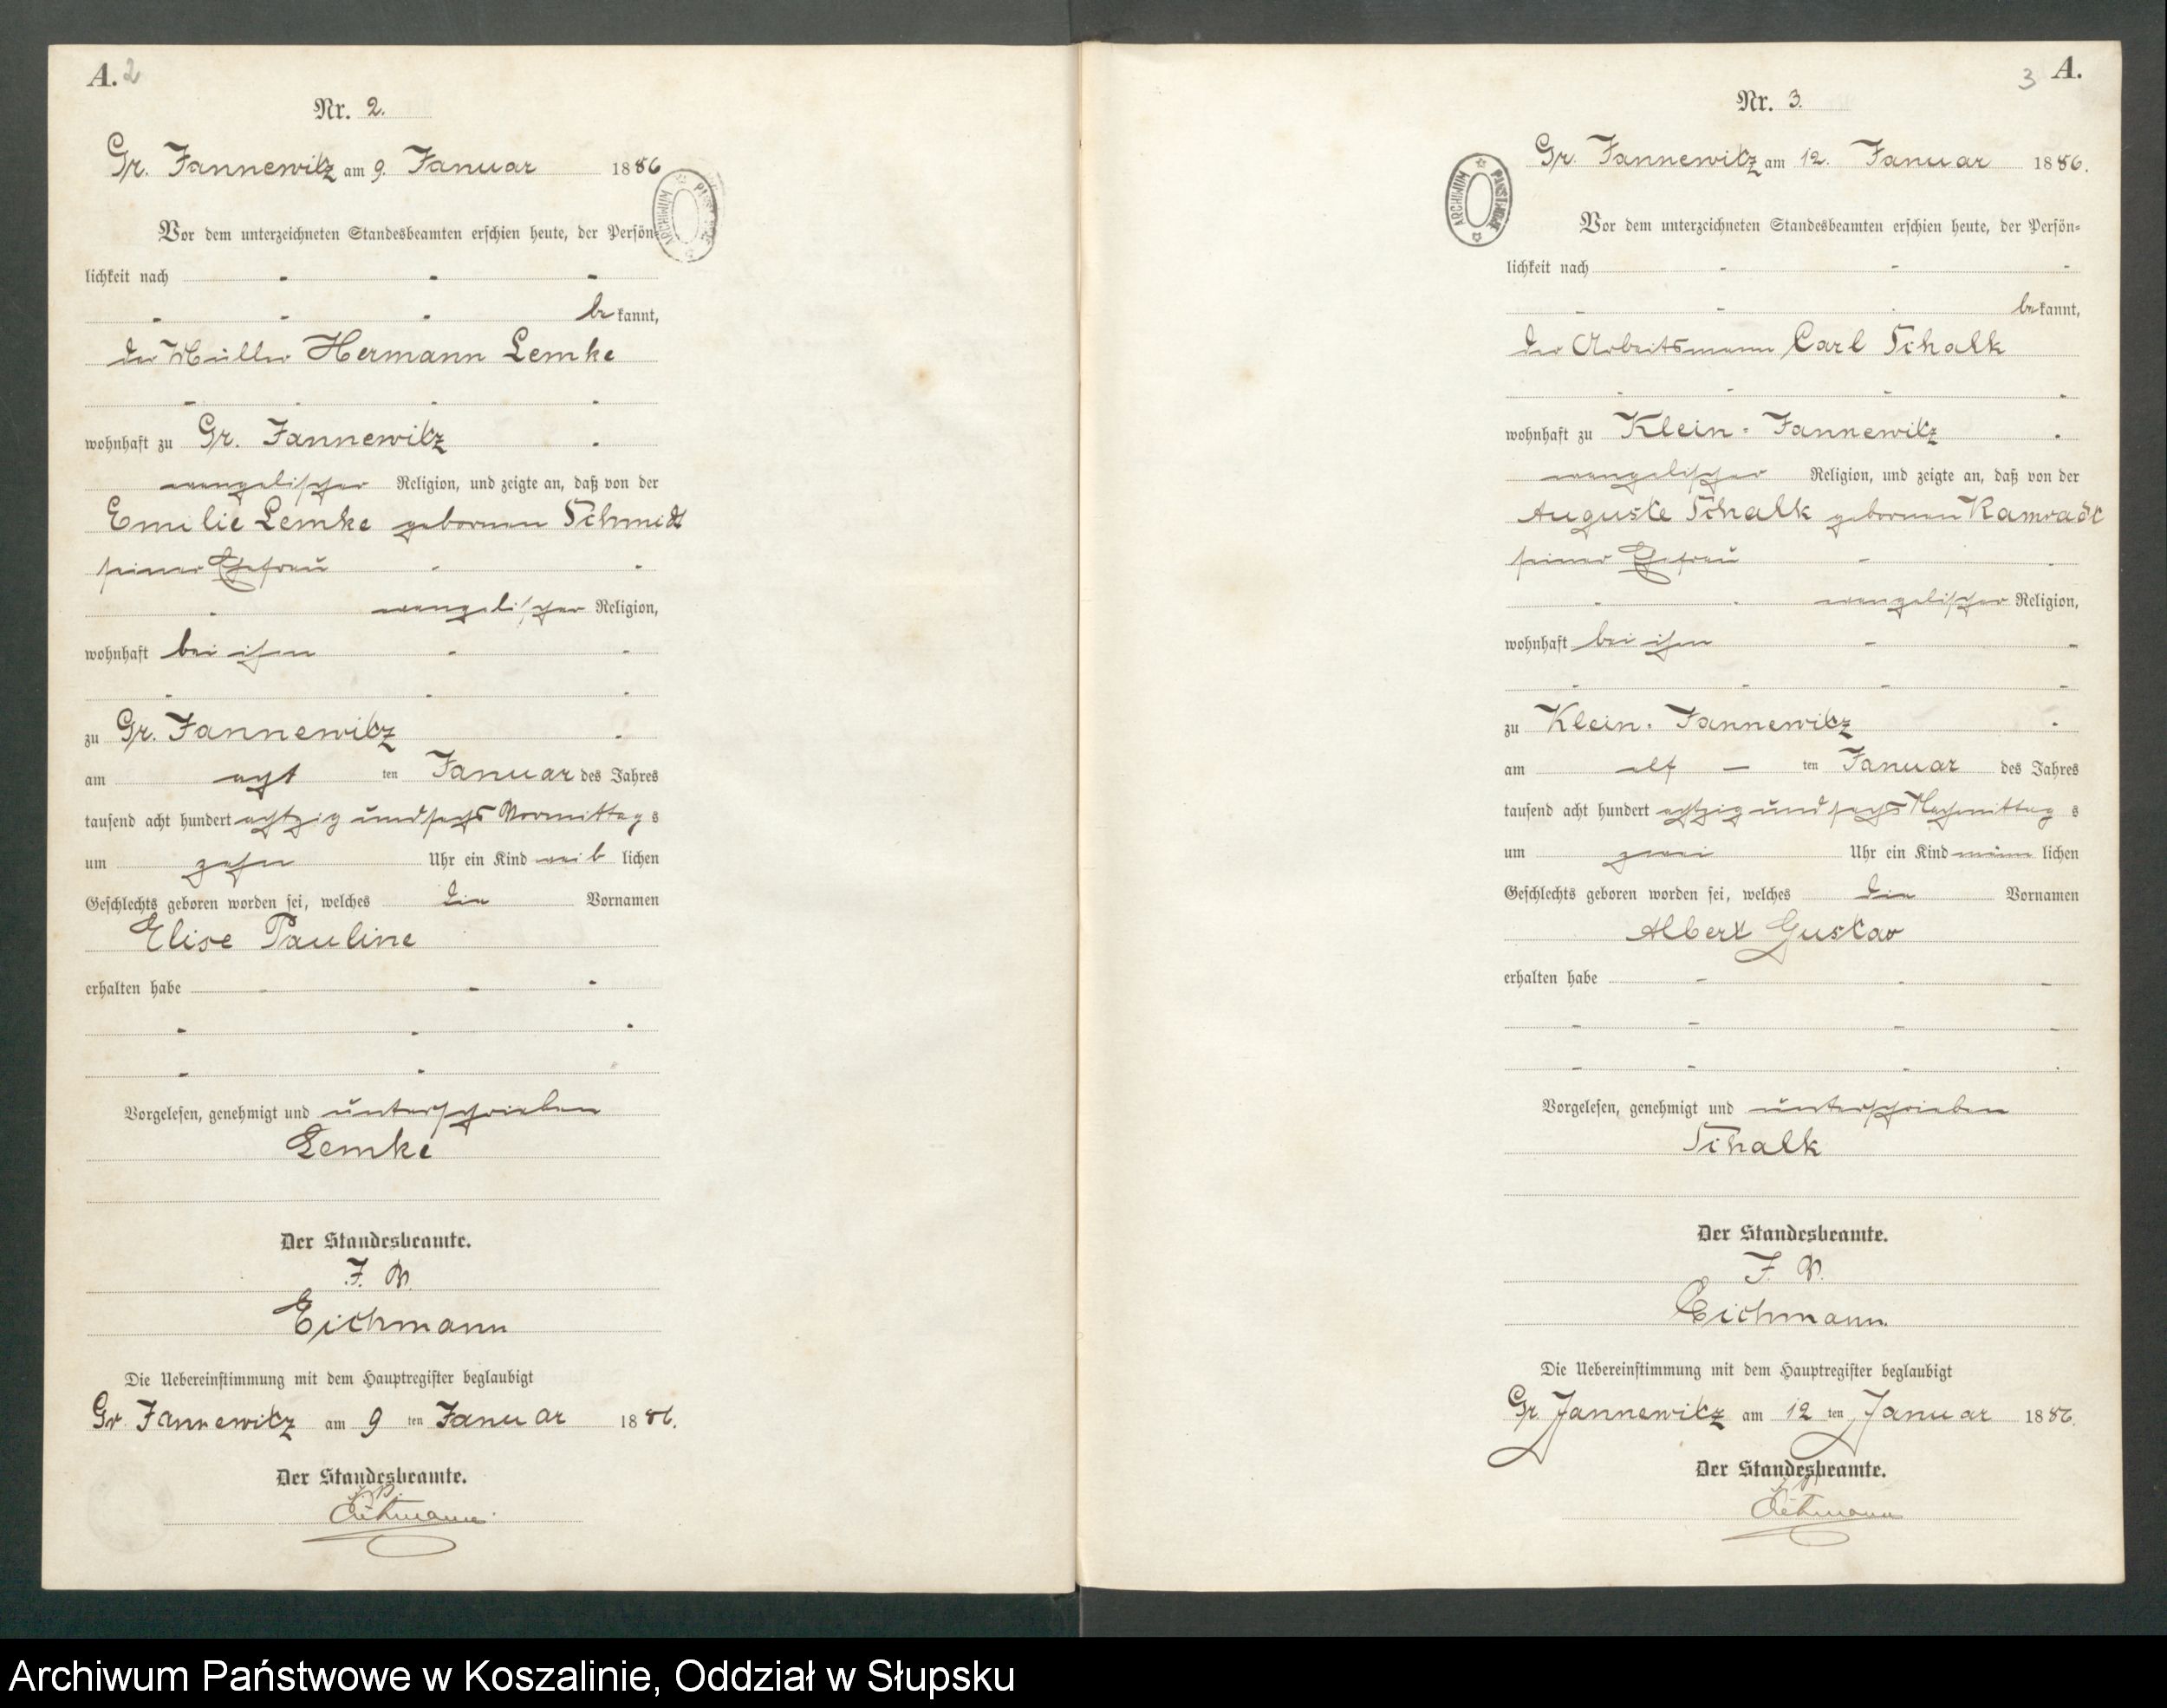 A. 2
Nr. 2.
Gr. Jannewitz am 9. Januar 1886
Vor dem unterzeichneten Standesbeamten erschien heute, der Persön-
lichkeit nach - - -
- - - bekannt,
der Müller Hermann Lemke
- - - -
wohnhaft zu Gr. Jannewitz -
evangelischer Religion, und zeigte an, daß von der
Emilie Lemke geborenen Schmidt
seiner Ehefrau - -
- evangelischer Religion,
wohnhaft bei ihm - -
- - -
zu Gr. Jannewitz -
am acht ten Januar des Jahres
tausend acht hundert achtzig und sechs Vormittags
um zehn Uhr ein Kind weiblichen
Geschlechts geboren worden sei, welches die Vornamen
Elise Pauline
erhalten habe - - -
- - -
- -
Vorgelesen, genehmigt und unterschrieben
Lemke
Der Standesbeamte.
J. V.
Eichmann
Die Uebereinstimmung mit dem Hauptregister beglaubigt
Gr. Jannewitz am 9 ten Januar 1886.
Der Standesbeamte.
J. V.
Eichmann
ARCHIWUM PAŃSTWOWE
3 A.
Nr. 3.
Gr. Jannewitz am 12. Januar 1886.
Vor dem unterzeichneten Standesbeamten erschien heute, der Persön-
lichkeit nach - - -
- - - bekannt,
der Arbeitsmann Carl Schalk
- - - -
wohnhaft zu Klein-Jannewitz -
evangelischer Religion, und zeigte an, daß von der
Auguste Schalk geborenen Kamradt
seiner Ehefrau - -
- - evangelischer Religion,
wohnhaft bei ihm - -
- - - -
zu Klein-Jannewitz -
am elf - ten Januar des Jahres
tausend acht hundert achtzig und sechs Nachmittags
um zwei Uhr ein Kind männlichen
Geschlechts geboren worden sei, welches die Vornamen
Albert Gustav
erhalten habe - - -
- - - -
- - - -
Vorgelesen, genehmigt und unterschrieben
Schalk
Der Standesbeamte.
J. V.
Eichmann
Die Uebereinstimmung mit dem Hauptregister beglaubigt
Gr. Jannewitz am 12 ten Januar 1886.
Der Standesbeamte.
J. V.
Eichmann
ARCHIWUM PAŃSTWOWE
Archiwum Państwowe w Koszalinie, Oddział w Słupsku